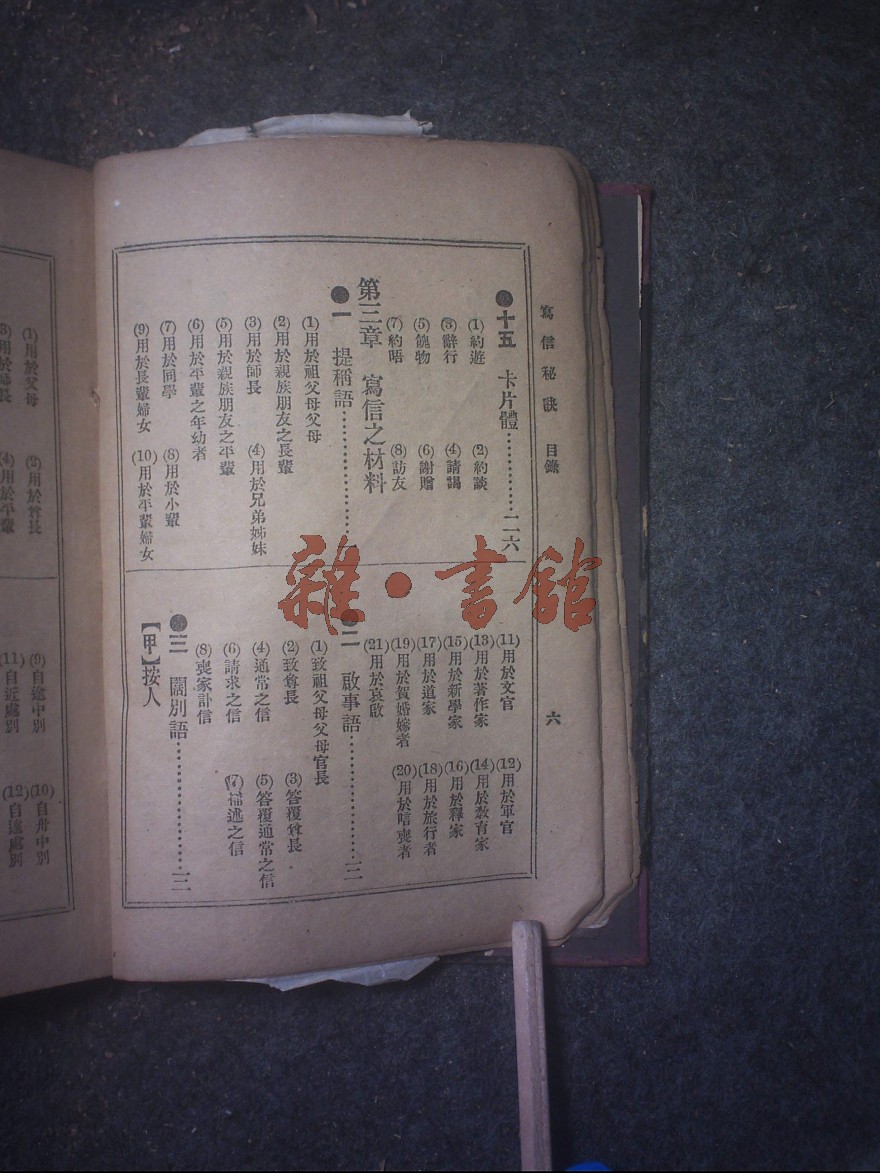 寫信秘訣 目錄
六
十五 卡片體…………二六
(1)約遊 (2)約談
(3)辭行 (4)請謁
(5)餽物 (6)謝贈
(7)約晤 (8)訪友
第三章 寫信之材料
一 提稱語…………
(1)用於祖父母父母
(2)用於親族朋友之長輩
(3)用於師長 (4)用於兄弟姊妹
(5)用於親族朋友之平輩
(6)用於平輩之年幼者
(7)用於同學 (8)用於小輩
(9)用於長輩婦女 (10)用於平輩婦女
(11)用於文官 (12)用於軍官
(13)用於著作家 (14)用於教育家
(15)用於新學家 (16)用於釋家
(17)用於道家 (18)用於旅行者
(19)用於賀婚嫁者 (20)用於唁喪者
(21)用於哀啟
二 啟事語…………三
(1)致祖父母父母官長
(2)致尊長 (3)答覆尊長
(4)通常之信 (5)答覆通常之信
(6)請求之信 (7)補述之信
(8)喪家訃信
三 闊別語…………三
【甲】按人
(1)用於父母 (2)用於尊長
(3)用於師長 (4)用於平輩
(9)自途中別 (10)自舟中別
(11)自近處別 (12)自遠處別
雜·書館